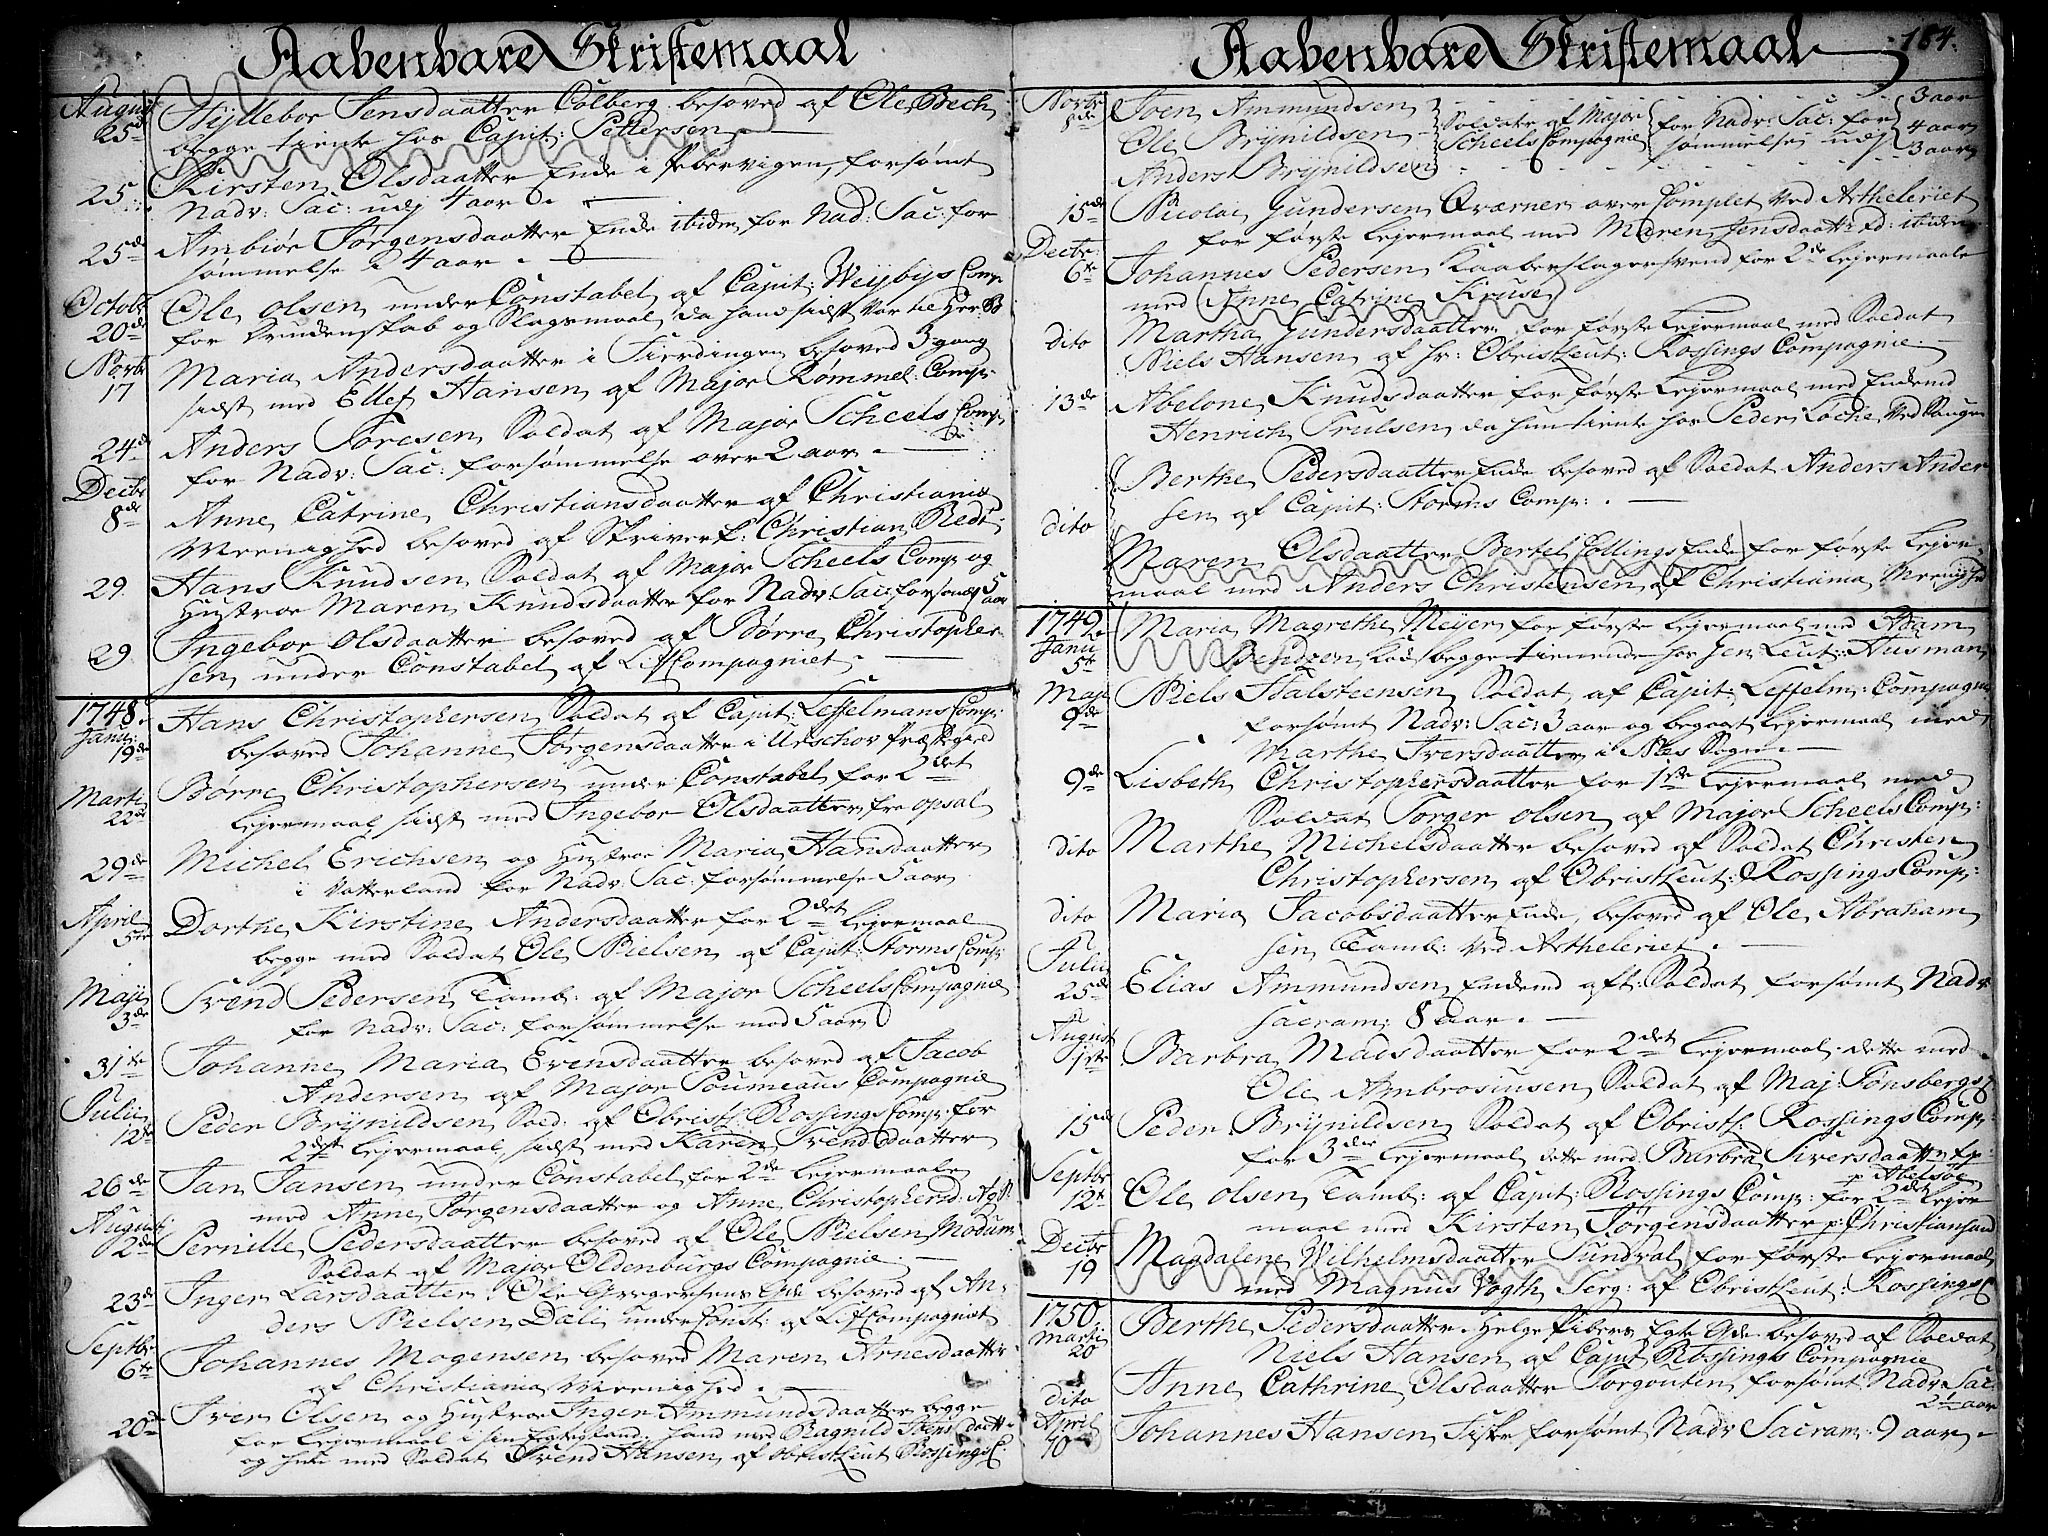 Aabenbare Skriftemaal
August 25de Hyllebor Jensdaatter Colberg besoved af Ole Bech
begge tiente hos Capit: Pettersen
25 Kirsten Olsdaatter Enke i Pibervigen, forsømt
Nadv: Sac: udj 4 aar
25de Ambiør Jørgensdaatter Enke ibidem, for Nad: Sac: for
sømmelse i 4 aar.
Octobr 20de Ole Olsen under Constabel af Capit: Weybÿs Comp:
for Drukenskab og Slagsmaal da hand sidst var til
Novbr 17 Maria Andersdaatter i Fierdingen besoved 3 gang
sidst med Ellef Hansen af Major Rømmel: Comp:
24de Anders Toresen Soldat af Major Scheels Comp:
for Nadv: Sac: forsømmelse over 2 aar.
Decbr 8de Anne Catrine Christiansdaatter af Christiania
Meenighed besoved af Skriverk: Christian
29. Hans Knudsen Soldat af Major Scheels Comp: og
Hustroe Maren Knudsdaatter for Nadv: Sac: forsømelse 5 aar
29 Ingebor Olsdaatter besoved af Børre Christopher
sen under Constabel af LifCompagniet.
1748. Janu: 19de Hans Christophersen Soldat af Capit: Leffelmans Comp:
besoved Johanne Jørgensdaatter i Urschov Præstegield
Marti 22de Børre Christophersen under Constabel for 2det
Lejermaal sidst med Ingebor Olsdaatter fra Opsal
29de Michel Erichsen og Hustroe Maria Hansdaatter
i Vatterland for Nadv: Sac: forsømmelse 5 aar
April 5te Dorthe Kirstine Andersdaatter for 2det Lejermaal
begge med Soldat Ole Nielsen af Capit: Storms Comp:
Maji 3de Svend Pedersen Tamb: af Major Scheels Compagnie
for Nadv: Sac: forsømmelse mod 5 aar
31te Johanne Maria Evensdaatter besoved af Jacob
Andersen af Major Poumeaus Compagnie
Julii 12te Peder Brÿnildsen Sold: af Obristl: Rossings Comp: for
2det Lejermaal, sidst med Karen Svendsdaatter
26de Jan Jansen under Constabel for 2de Lejermaale
med Anne Jørgensdaatter og Anne Christophersd:
Augusti 2de Pernille Pedersdaatter besoved af Ole Nielsen Modum
Soldat af Major Oldenburgs Compagnie
23de Inger Larsdaatter, Ole Gregersens Enke besoved af An-
ders Nielsen Dali under Const: af LifCompagniet
Septbr 6te Johannes Mogensen besoved Maren Arnesdaatter
af Christiania Meenighed.
20de Iver Olsen og Hustroe Inger Ammundsdaatter begge
for Lejermaal i sin Egtestand. hand med Ragnild daatt:
og hun med Soldat Svend Hansen af Obristleut Rossings C:
Aabenbare Skriftemaal 184.
Novbr 8de Joen Ammundsen
Ole Brÿnildsen
Anders Brÿnildsen
Soldate af Major
Scheels Compagnie
for Nadv: Sac: for
sømmelse, udj
3 aar
4 aar
3 aar
15de Nicolai Gundersen Qværner over Complet ved Artheleriet
for første Lejermaal med Maren Jensdaatter ibidem
Decbr: 6te Johannes Pedersen Kaaberslagersvend for 2de Lejermaale
med Anne Catrine Kruse
dito Martha Gundersdaatter for første Lejermaal med Soldat
Niels Hansen af Hr: Obristleut: Rossings Compagnie.
13de Abelone Knudsdaatter for første Lejermaal med Enkemd
Henrich Trulsen da hun tiente hos Peder Loche ved Saugen
Berthe Pedersdaatter Enke besoved af Soldat Anders Ander
sen af Capit: Storms Comp:.
dito Maren Olsdaatter Bertel Collings Enke for første Lejer-
maal med Anders Christensen af Christiania Meenighed
1749. Janu: 5te Maria Magrethe Meÿer for første Lejermaal med Adam
Bendzen begge tienende hos Gen: Leut: Husman
Maji 9de Niels Halsteensen Soldat af Capit: Leffelm: Compagnie
forsømt Nadv: Sac: 3 aar og begaaet Lejermaal med
Marthe Iversdaatter i Næs Sogn.
9de Lisbeth Christophersdaatter for 1ste Lejermaal med
Soldat Torger Olsen af Major Scheels Comp:
dito Marthe Michelsdaatter besoved af Soldat Christen
Christophersen af Obristleut: Rossings Comp:
dito Maria Jacobsdaatter Enke, besoved af Ole Abraham
sen Tamb: ved Artheleriet.
Julii 25de Elias Ammundsen Enkemd aft: Soldat forsømt Nadv:
sacram: 8 aar.
August 1ste Barbra Madsdaatter for 2det Lejermaal, dette med
Ole Ambrosiusen Soldat af Maj: Tønsbergs C
15de Peder Brÿnildsen Soldat af Obristl: Rossings Comp:
for 3die Lejermaal dette med Barbra Siversdaatter
p Abelsøe
Septbr 12te Ole Olsen Tamb: af Capit: Rossings Comp: for 2det Lejer
maal med Kirsten Jørgensdaatter p: Christiansand
Decbr 19 Magdalene Wilhelmsdaatter Sundval for første Lejermaal
med Magnus Vogth Serg: af Obristleut: Rossings C
1750. Martii 20 Berthe Pedersdaatter Helge Pibers Egte besoved af Soldat
Niels Hansen af Capit Rossings Compagnie
dito Anne Cathrine Olsdaatter Torgouten forsømt Nadv: Sac:
2 aar
April 10 Johannes Hansen Fiske forsømt Nadv Sacram: 9 aar.